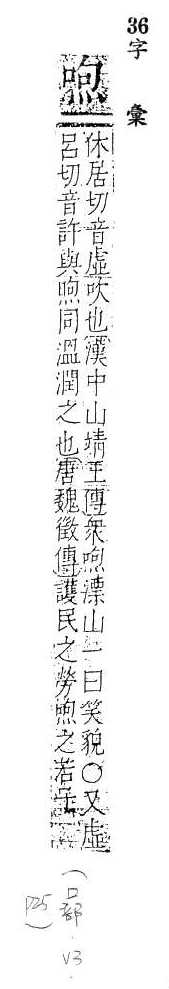 36
字彙
呴
休居切音虛吹也漢中山靖王傳衆呴漂山一曰笑貌○又虛
呂切音許與煦同溫潤之也唐魏徵傳護民之勞煦之若子
(口部 · V3 ·
P25)